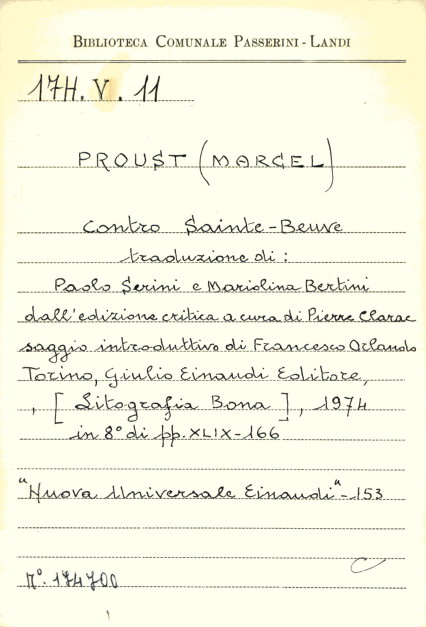 BIBLIOTECA COMUNALE PASSERINI - LANDI
17H. V. 11
PROUST (MARCEL)
Contro Sainte-Beuve
traduzione di :
Paolo Serini e Mariolina Bertini
dall'edizione critica a cura di Pierre Clarac
saggio introduttivo di Francesco Orlando
Torino, Giulio Einaudi Editore,
, [Litografia Bona], 1974
in 8° di pp. XLIX-166
"Nuova Universale Einaudi"-153
N°. 174700